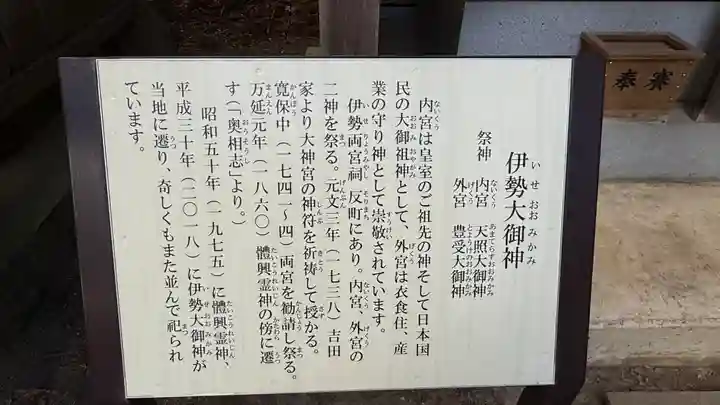 伊勢大御神
祭神 内宮 天照大御神
外宮 豊受大御神
内宮は皇室のご祖先の神そして日本国
民の大御祖神として、外宮は衣食住、産
業の守り神として崇敬されています。
伊勢両宮祠 反町にあり。内宮、外宮の
二神を祭る。元文三年(一七三八)吉田
家より大神宮の神符を祈祷して授かる。
寛保中(一七四一~四)両宮を勧請し祭る。
万延元年(一八六〇)體興霊神の傍に遷
す(「奥相志」より。)
昭和五十年(一九七五)に體興霊神、
平成三十年(二〇一八)に伊勢大御神が
当地に遷り、奇しくもまた並んで祀られ
ています。
奉賽